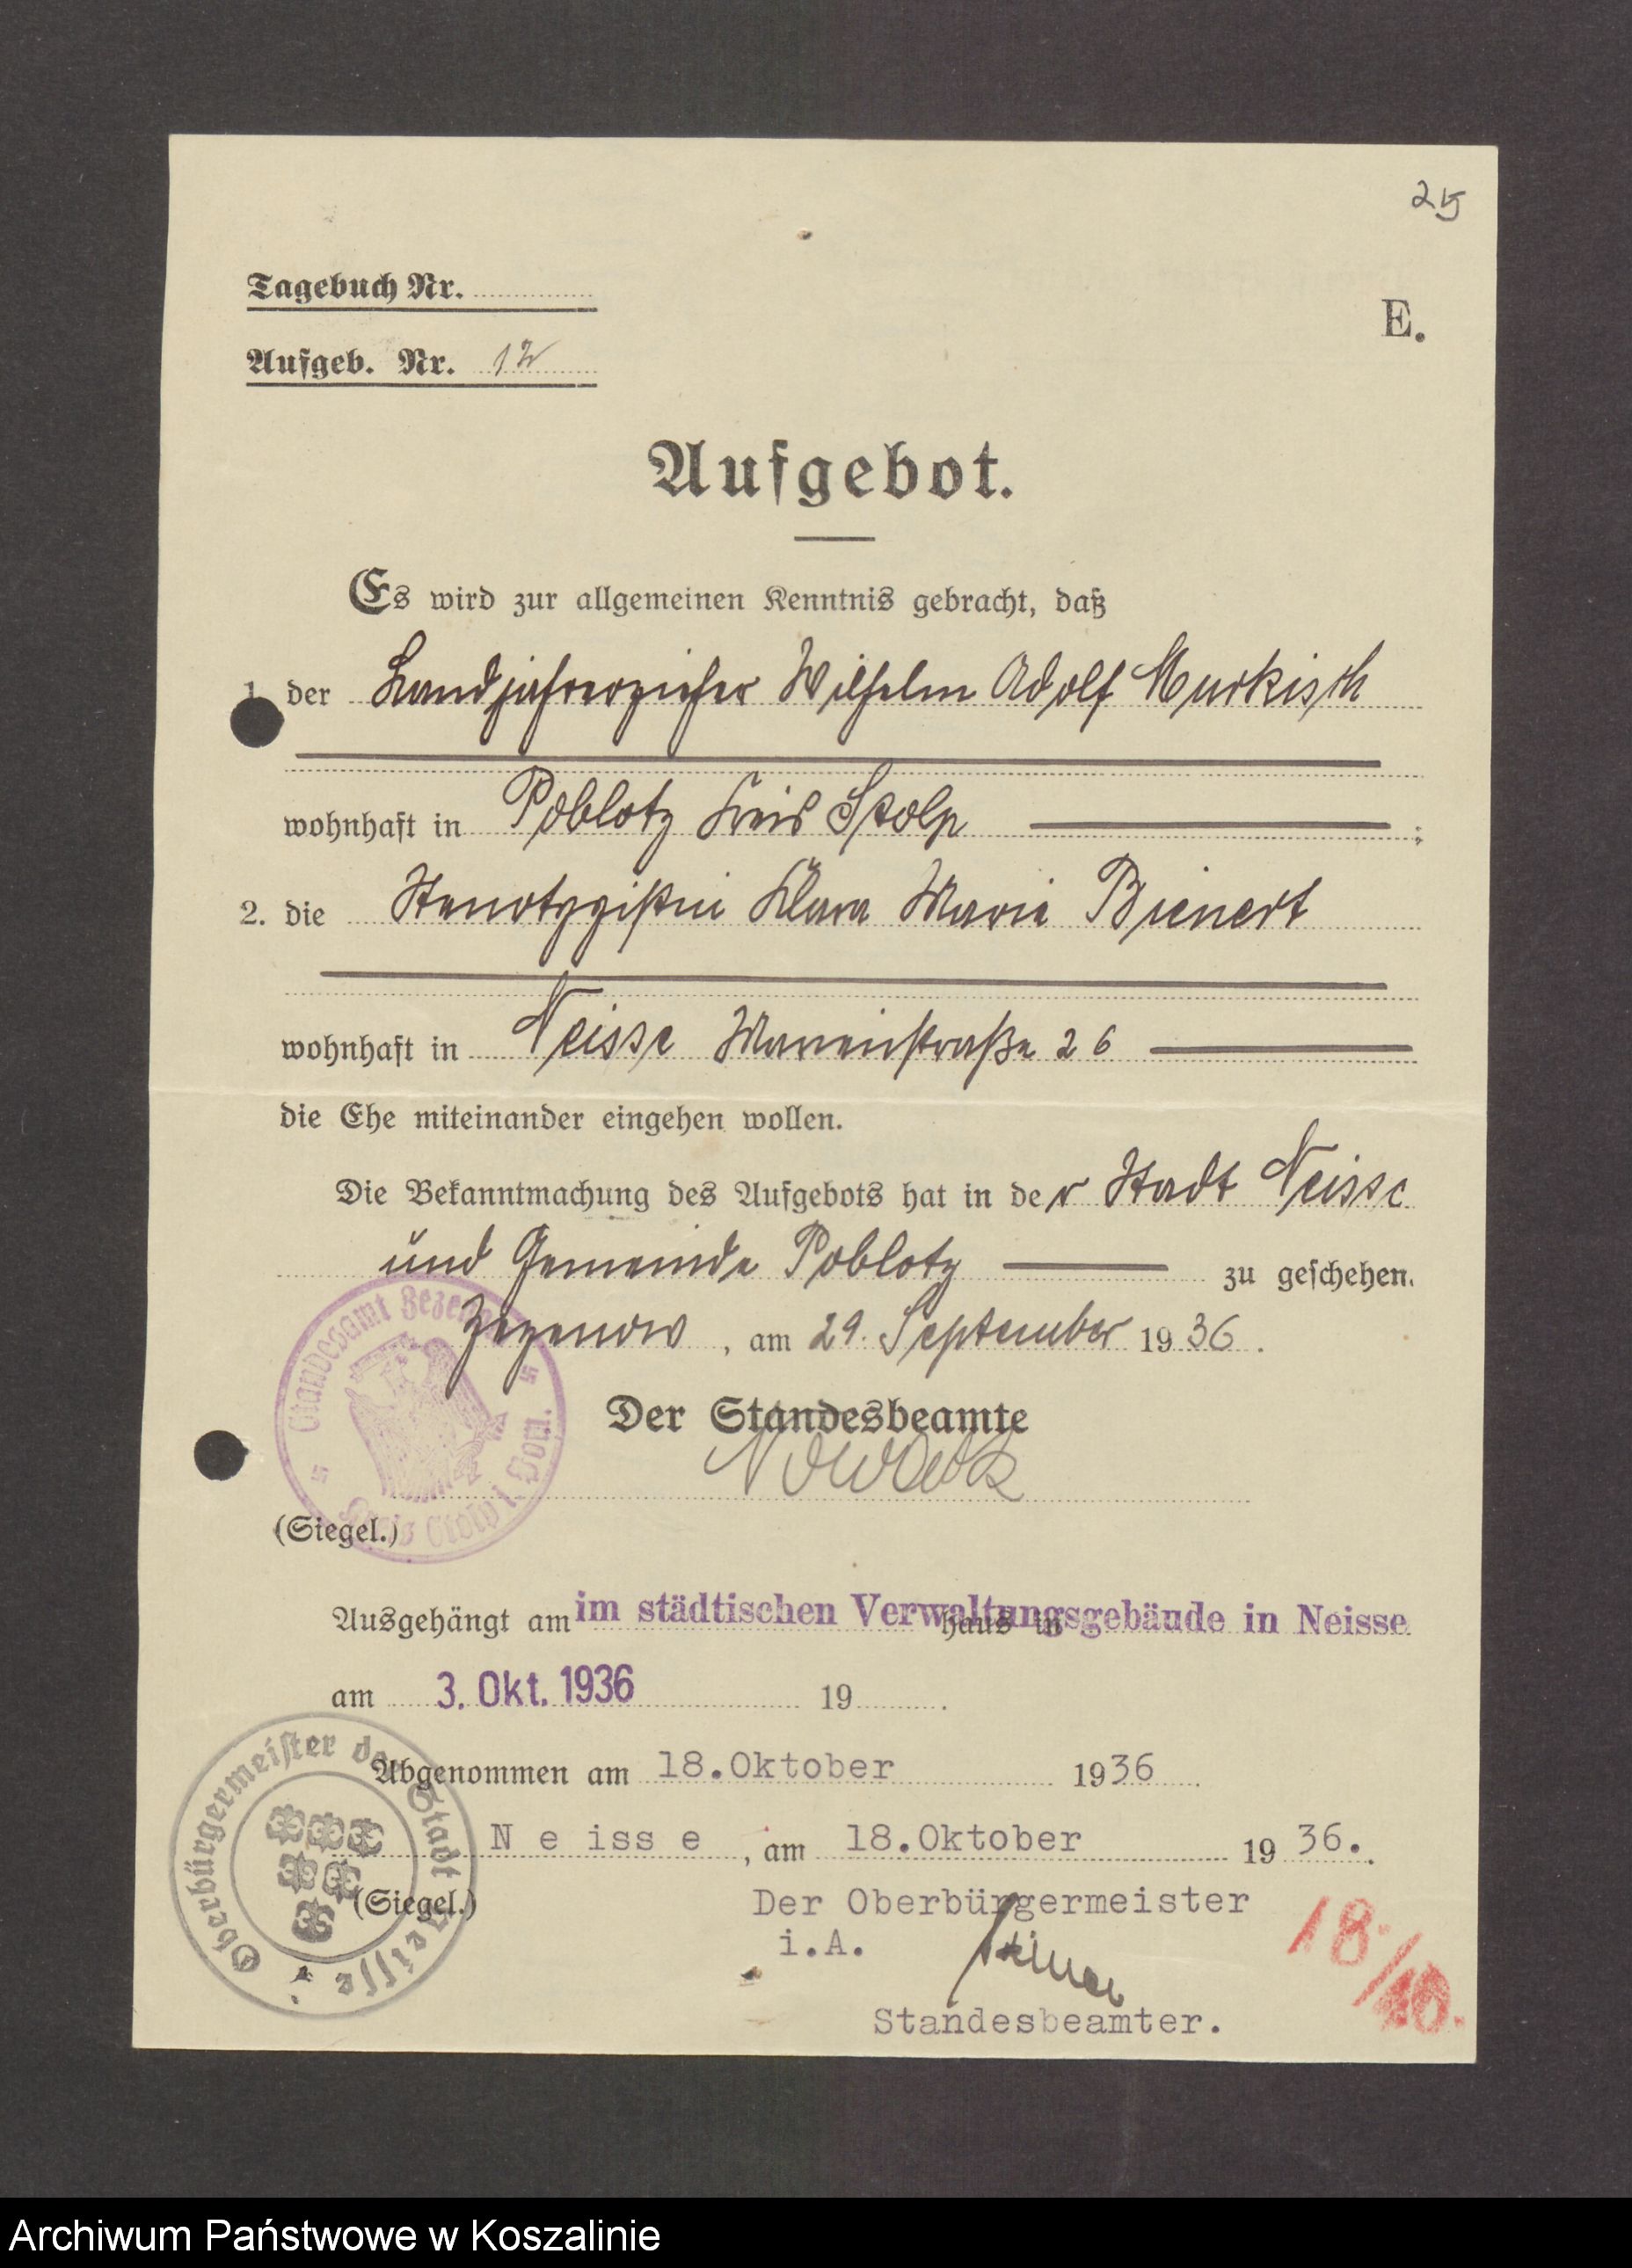 25
Tagebuch Nr.
E.
Aufgeb. Nr. 12
Aufgebot.
Es wird zur allgemeinen Kenntnis gebracht, daß
1. der Landjahrerzieher Wilhelm Adolf Murkisch
wohnhaft in Poblotz Kreis Stolp ;
2. die Stenotypistin Klara Maria Bienert
wohnhaft in Neisse Marienstraße 26
die Ehe miteinander eingehen wollen.
Die Bekanntmachung des Aufgebots hat in der Stadt Neisse
und Gemeinde Poblotz zu geschehen.
Zezenow, am 29. September 1936.
Standesamt Zezenow
Kreis Stolp i. Pom.
Der Standesbeamte
(Siegel.)
Ausgehängt am im städtischen Verwaltungsgebäude in Neisse
haus in
am 3. Okt. 1936 19 .
Abgenommen am 18.Oktober 1936
Oberbürgermeister der Stadt Neisse
Neisse, am 18.Oktober 1936..
(Siegel.)
Der Oberbürgermeister
i.A.
18/10.
Standesbeamter.
Archiwum Państwowe w Koszalinie